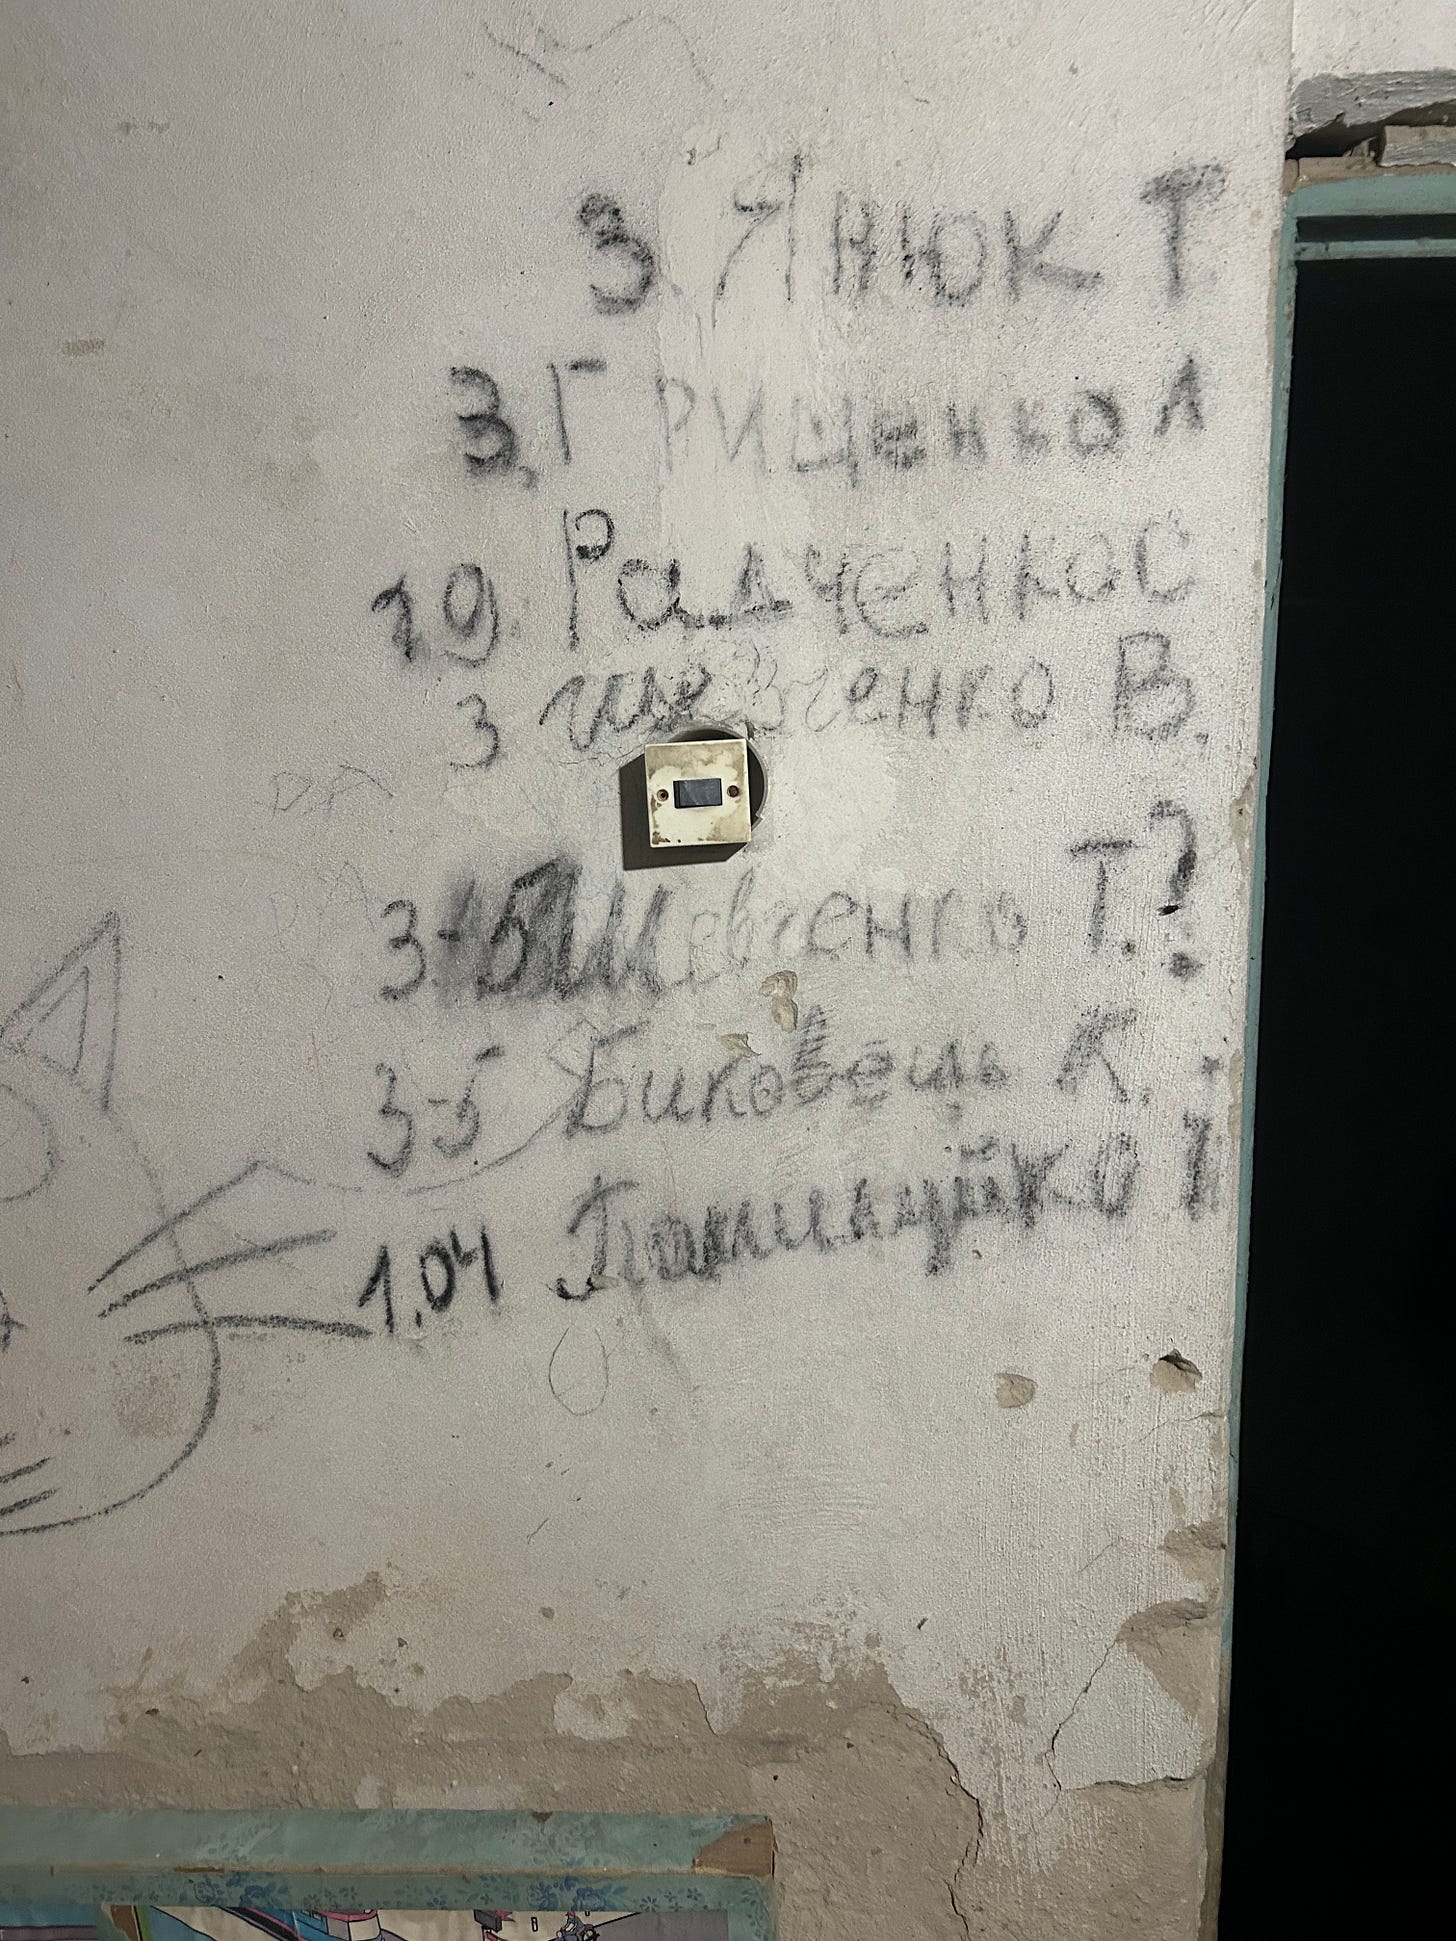 3. Янюк Т
3, Грищенко Л
19. Радченко О
3 Шевченко В.
3-5 Шевченко Т.?
3-5 Биковець К.
1.04